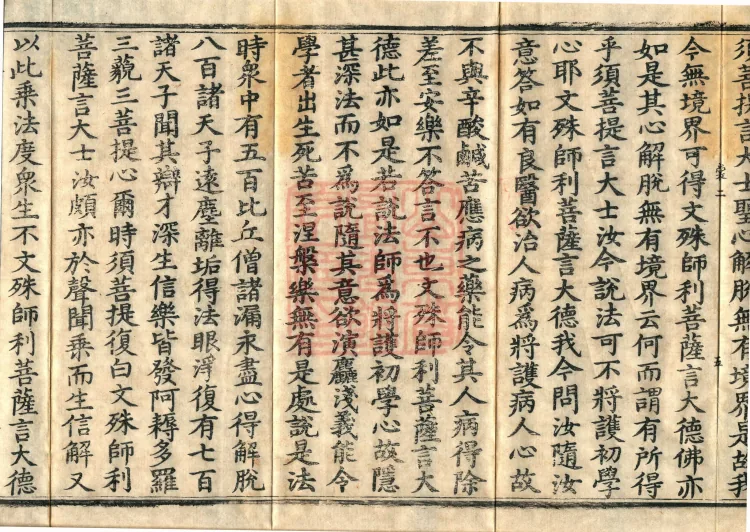 須菩提言大士聖心解脫無有境界是故我
今無境界可得文殊師利菩薩言大德佛亦
如是其心解脫無有境界云何而謂有所得
乎須菩提言大士汝今說法可不將護初學
心耶文殊師利菩薩言大德我今問汝隨汝
意答如有良醫欲治人病為將護病人心故
不與辛酸鹹苦應病之藥能令其人病得除
差至安樂不答言不也文殊師利菩薩言大
德此亦如是若說法師為將護初學心故隱
甚深法而不為說隨其意欲演麤淺義能令
學者出生死苦至涅槃樂無有是處說是法
時衆中有五百比丘僧諸漏永盡心得解脫
八百諸天子遠塵離垢得法眼淨復有七百
諸天子聞其辯才深生信樂皆發阿耨多羅
三藐三菩提心爾時須菩提復白文殊師利
菩薩言大士汝頗亦於聲聞乘而生信解又
以此乘法度衆生不文殊師利菩薩言大德